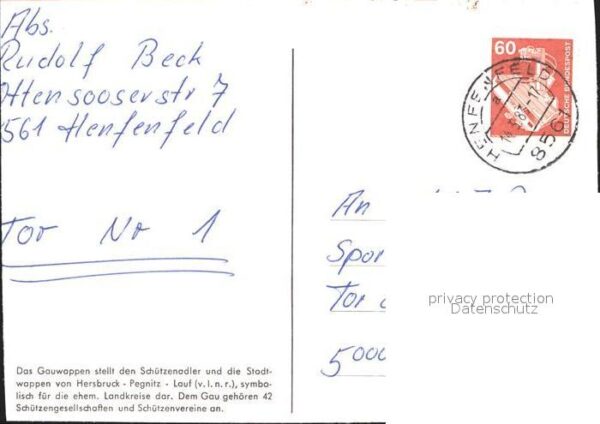 Abs.
Rudolf Beck
Ottensooserstr 7
8561 Henfenfeld
Tor Nr 1
60
DEUTSCHE BUNDESPOST
HENFENFELD
856
An
Spor
Tor
5000
privacy protection
Datenschutz
Das Gauwappen stellt den Schützenadler und die Stadt-
wappen von Hersbruck - Pegnitz - Lauf (v. l. n. r.), symbo-
lisch für die ehem. Landkreise dar. Dem Gau gehören 42
Schützengesellschaften und Schützenvereine an.